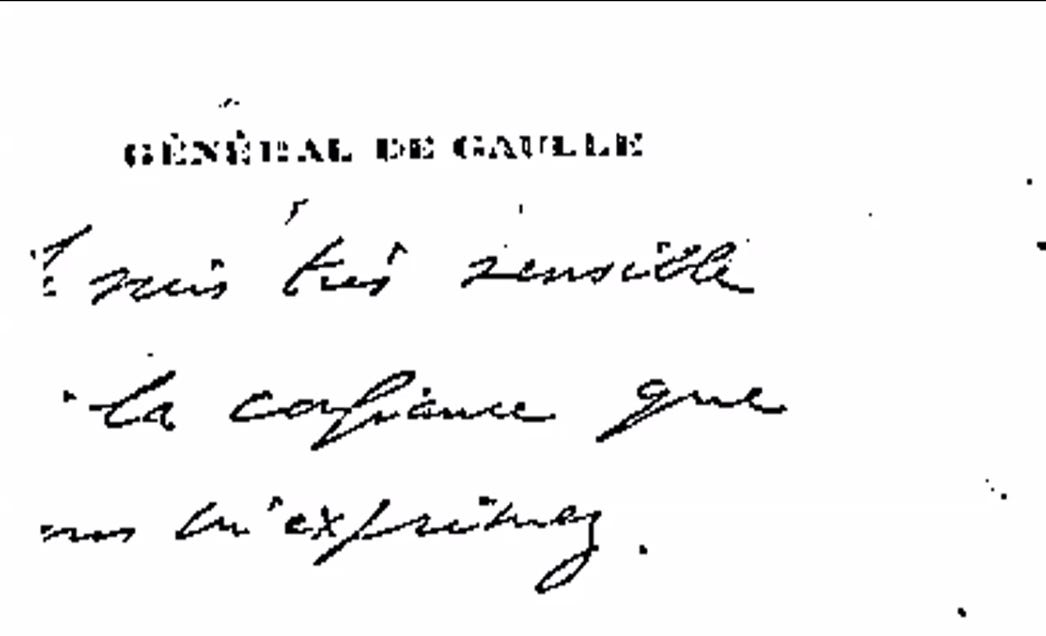 GÉNÉRAL DE GAULLE
suis très sensible
la confiance que
vous m'exprimez.